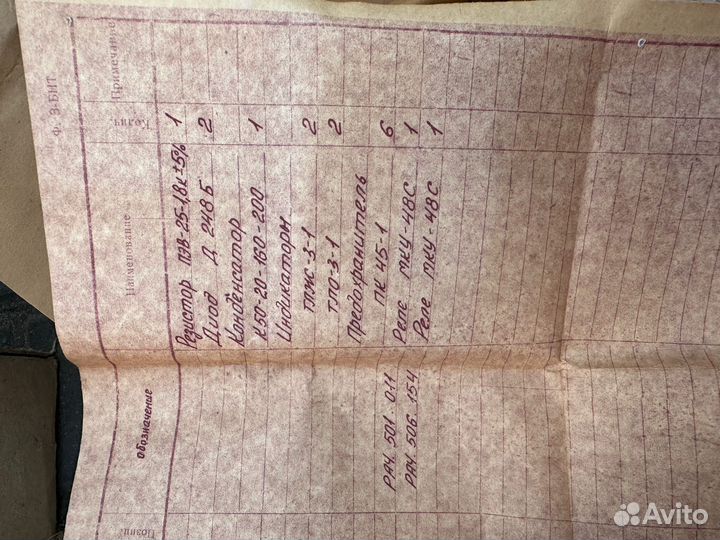 Ф. 3-БНТ
Позиц. Обозначение Наименование Колич. Примечание
Резистор ПЭВ-25-1,8к±5% 1
Диод Д 248 Б 2
Конденсатор
К50-20-160-200 1
Индикаторы
ТЛЖ-3-1 2
ТЛО-3-1 2
Предохранитель
ПК 45-1 6
РА4. 501. 011 Реле МКУ-48С 1
РА4. 506. 154 Реле МКУ-48С 1
Avito